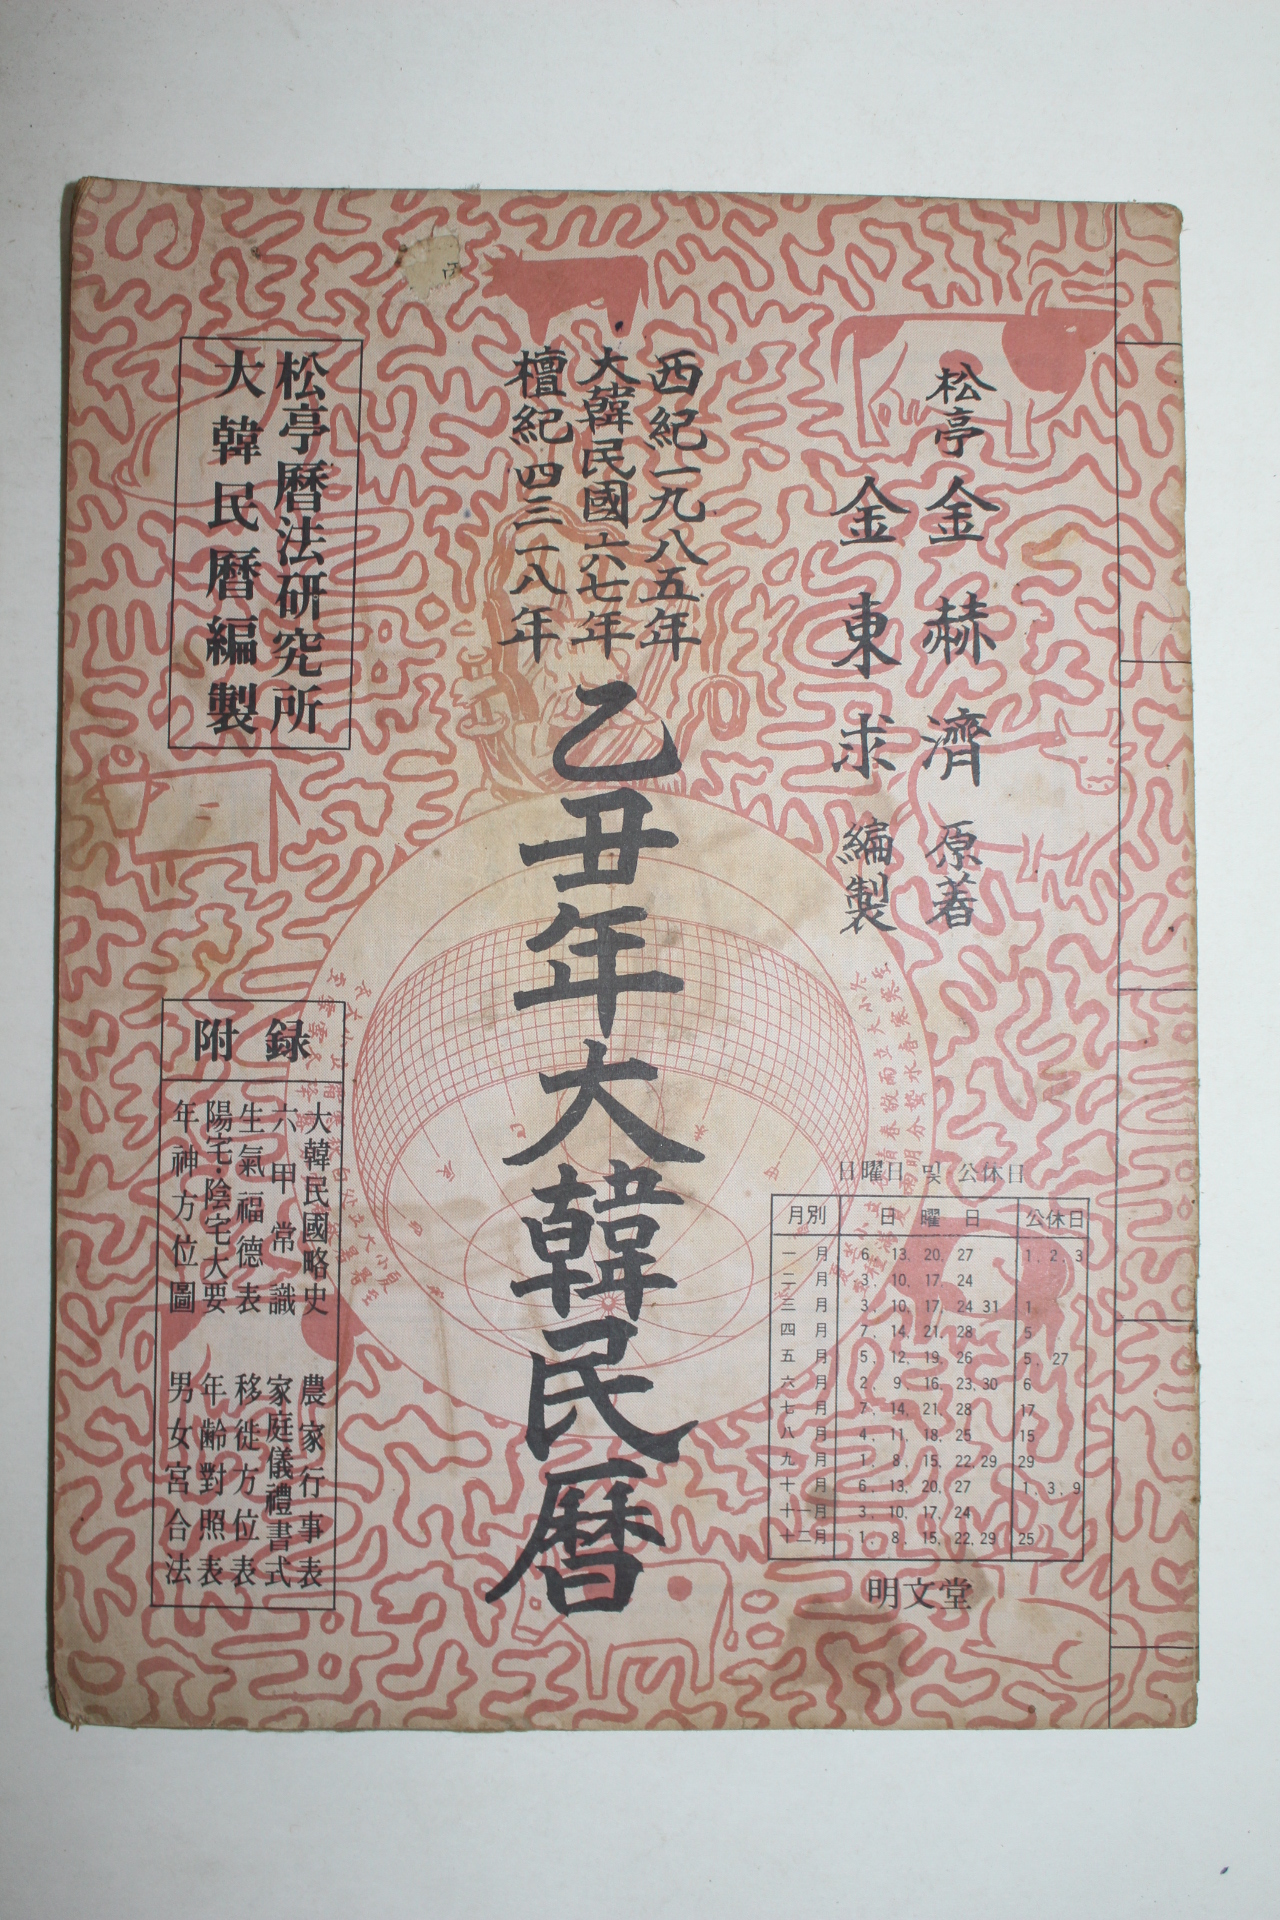 松亭 金赫濟 原著
金東求 編製
西紀一九八五年
大韓民國六七年
檀紀四三一八年
乙丑年大韓民曆
松亭曆法研究所
大韓民曆編製
附録
大韓民國略史
六甲常識
生氣福德表
陽宅·陰宅大要
年神方位圖
農家行事表
家庭儀禮書式
移徙方位表
年齡對照表
男女宮合法
日曜日 및 公休日
月別 日曜日 公休日
一月 6, 13, 20, 27 1, 2, 3
二月 3, 10, 17, 24
三月 3, 10, 17, 24 31 1
四月 7, 14, 21, 28 5
五月 5, 12, 19, 26 5, 27
六月 2, 9, 16, 23, 30 6
七月 7, 14, 21, 28 17
八月 4, 11, 18, 25 15
九月 1, 8, 15, 22, 29 29
十月 6, 13, 20, 27 1, 3, 9
十一月 3, 10, 17, 24
十二月 1, 8, 15, 22, 29 25
明文堂